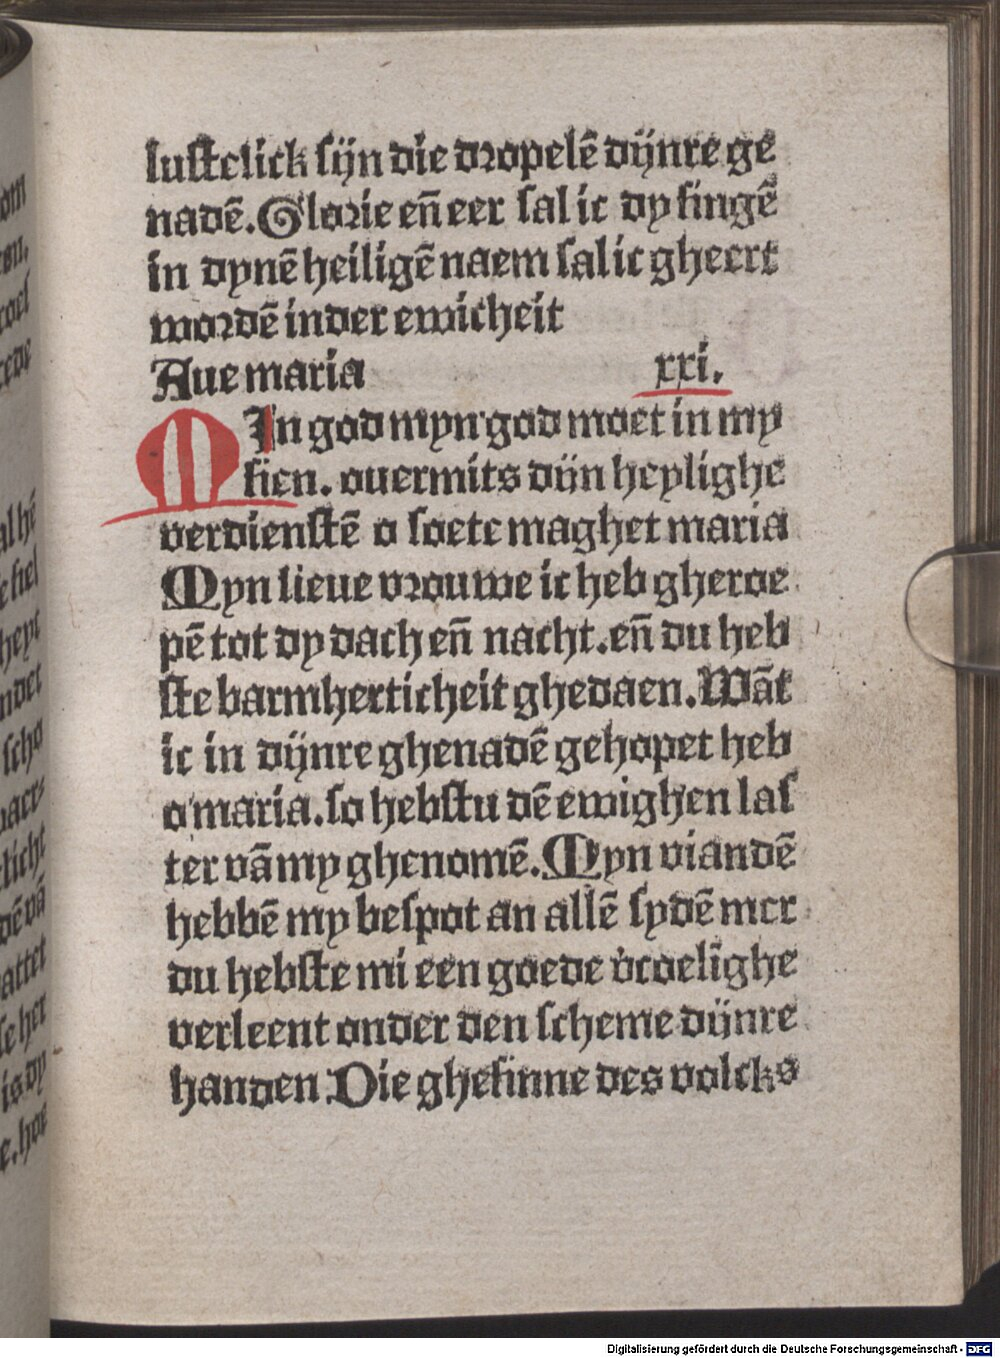 lustelick sijn die dropelē dijnre ge
nadē. Glorie en̄ eer sal ic dy singē
in dynē heiligē naem sal ic gheert
wordē in der ewicheit
Aue maria xxi.
MIn god myn god moet in my
sien. ouermits dijn heylighe
verdienstē o soete maghet maria
Myn lieue vrouwe ic heb gheroe
pē tot dy dach en̄ nacht. en̄ du heb
ste barmherticheit ghedaen. Wāt
ic in dijnre ghenadē gehopet heb
o maria. so hebstu dē ewighen las
ter vā my ghenomē. Myn viandē
hebbē my bespot an allē sydē mer
du hebste mi een goede v̓coelīghe
verleent onder den scheme dijnre
handen Die ghesinne des volcks
Digitalisierung gefördert durch die Deutsche Forschungsgemeinschaft - DFG